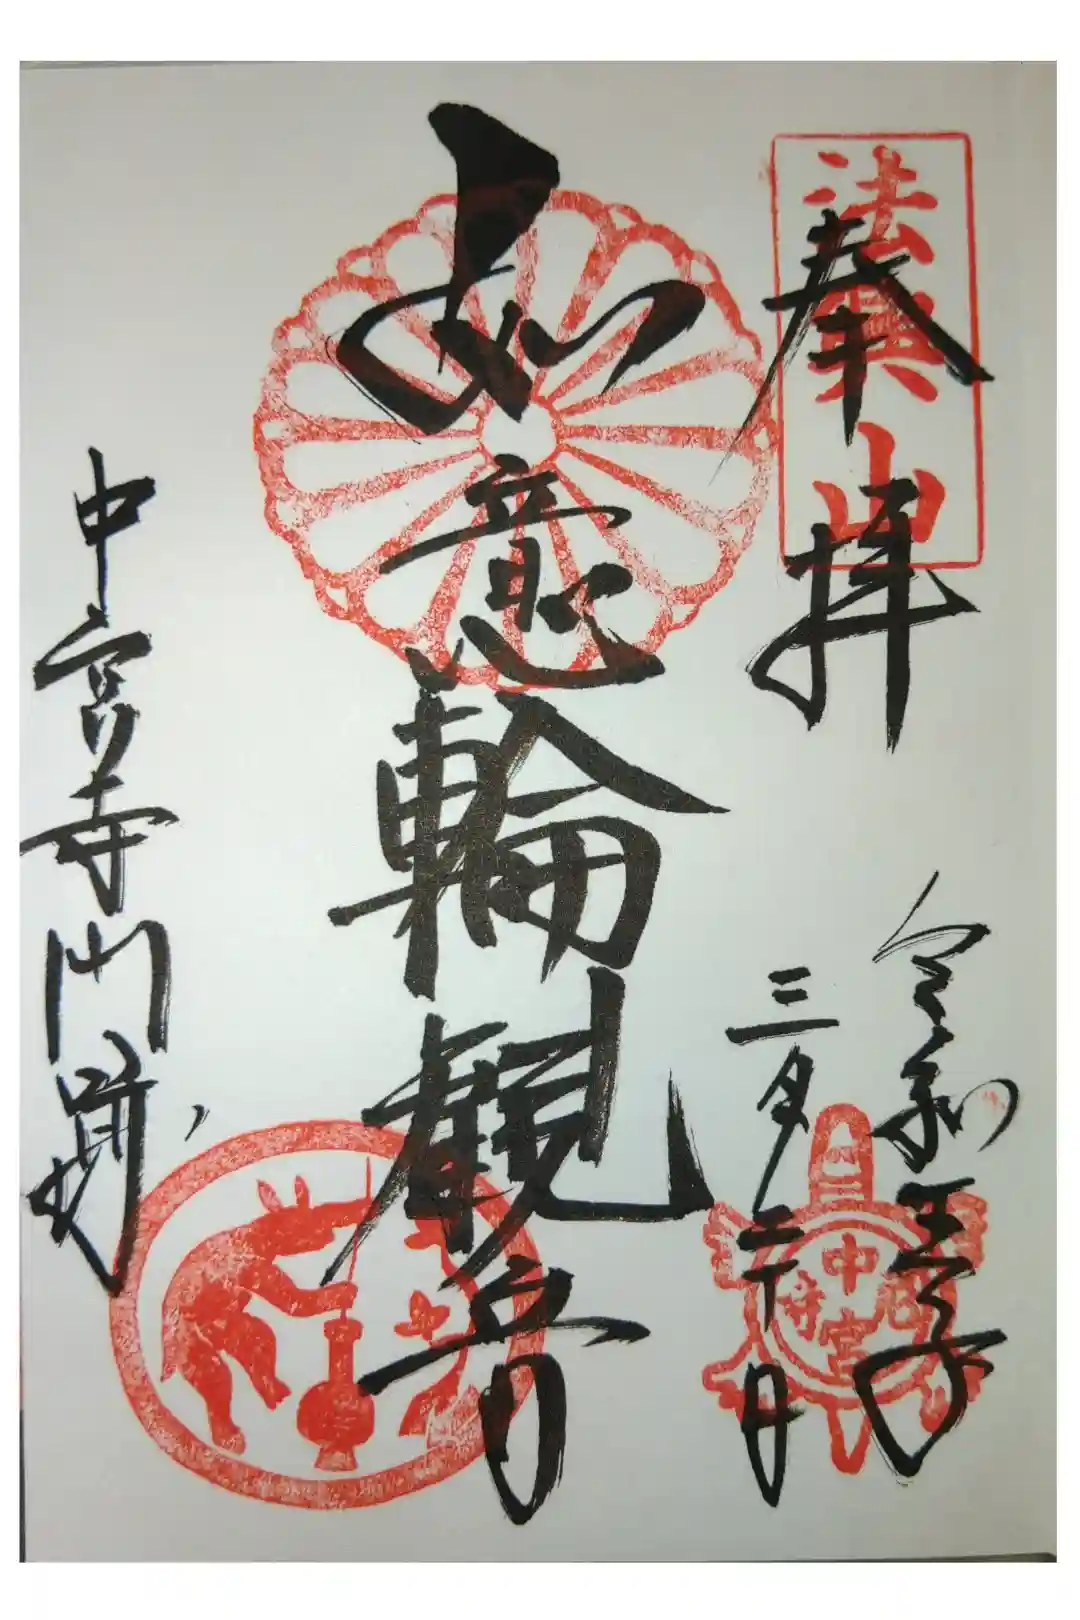 法興山
奉拝
令和
三月二十日
如意輪観音
中宮寺門跡
中宮尼寺